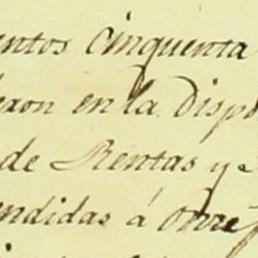 entos cinquenta
eron en la Dispo
de Rentas y
endidas á onze